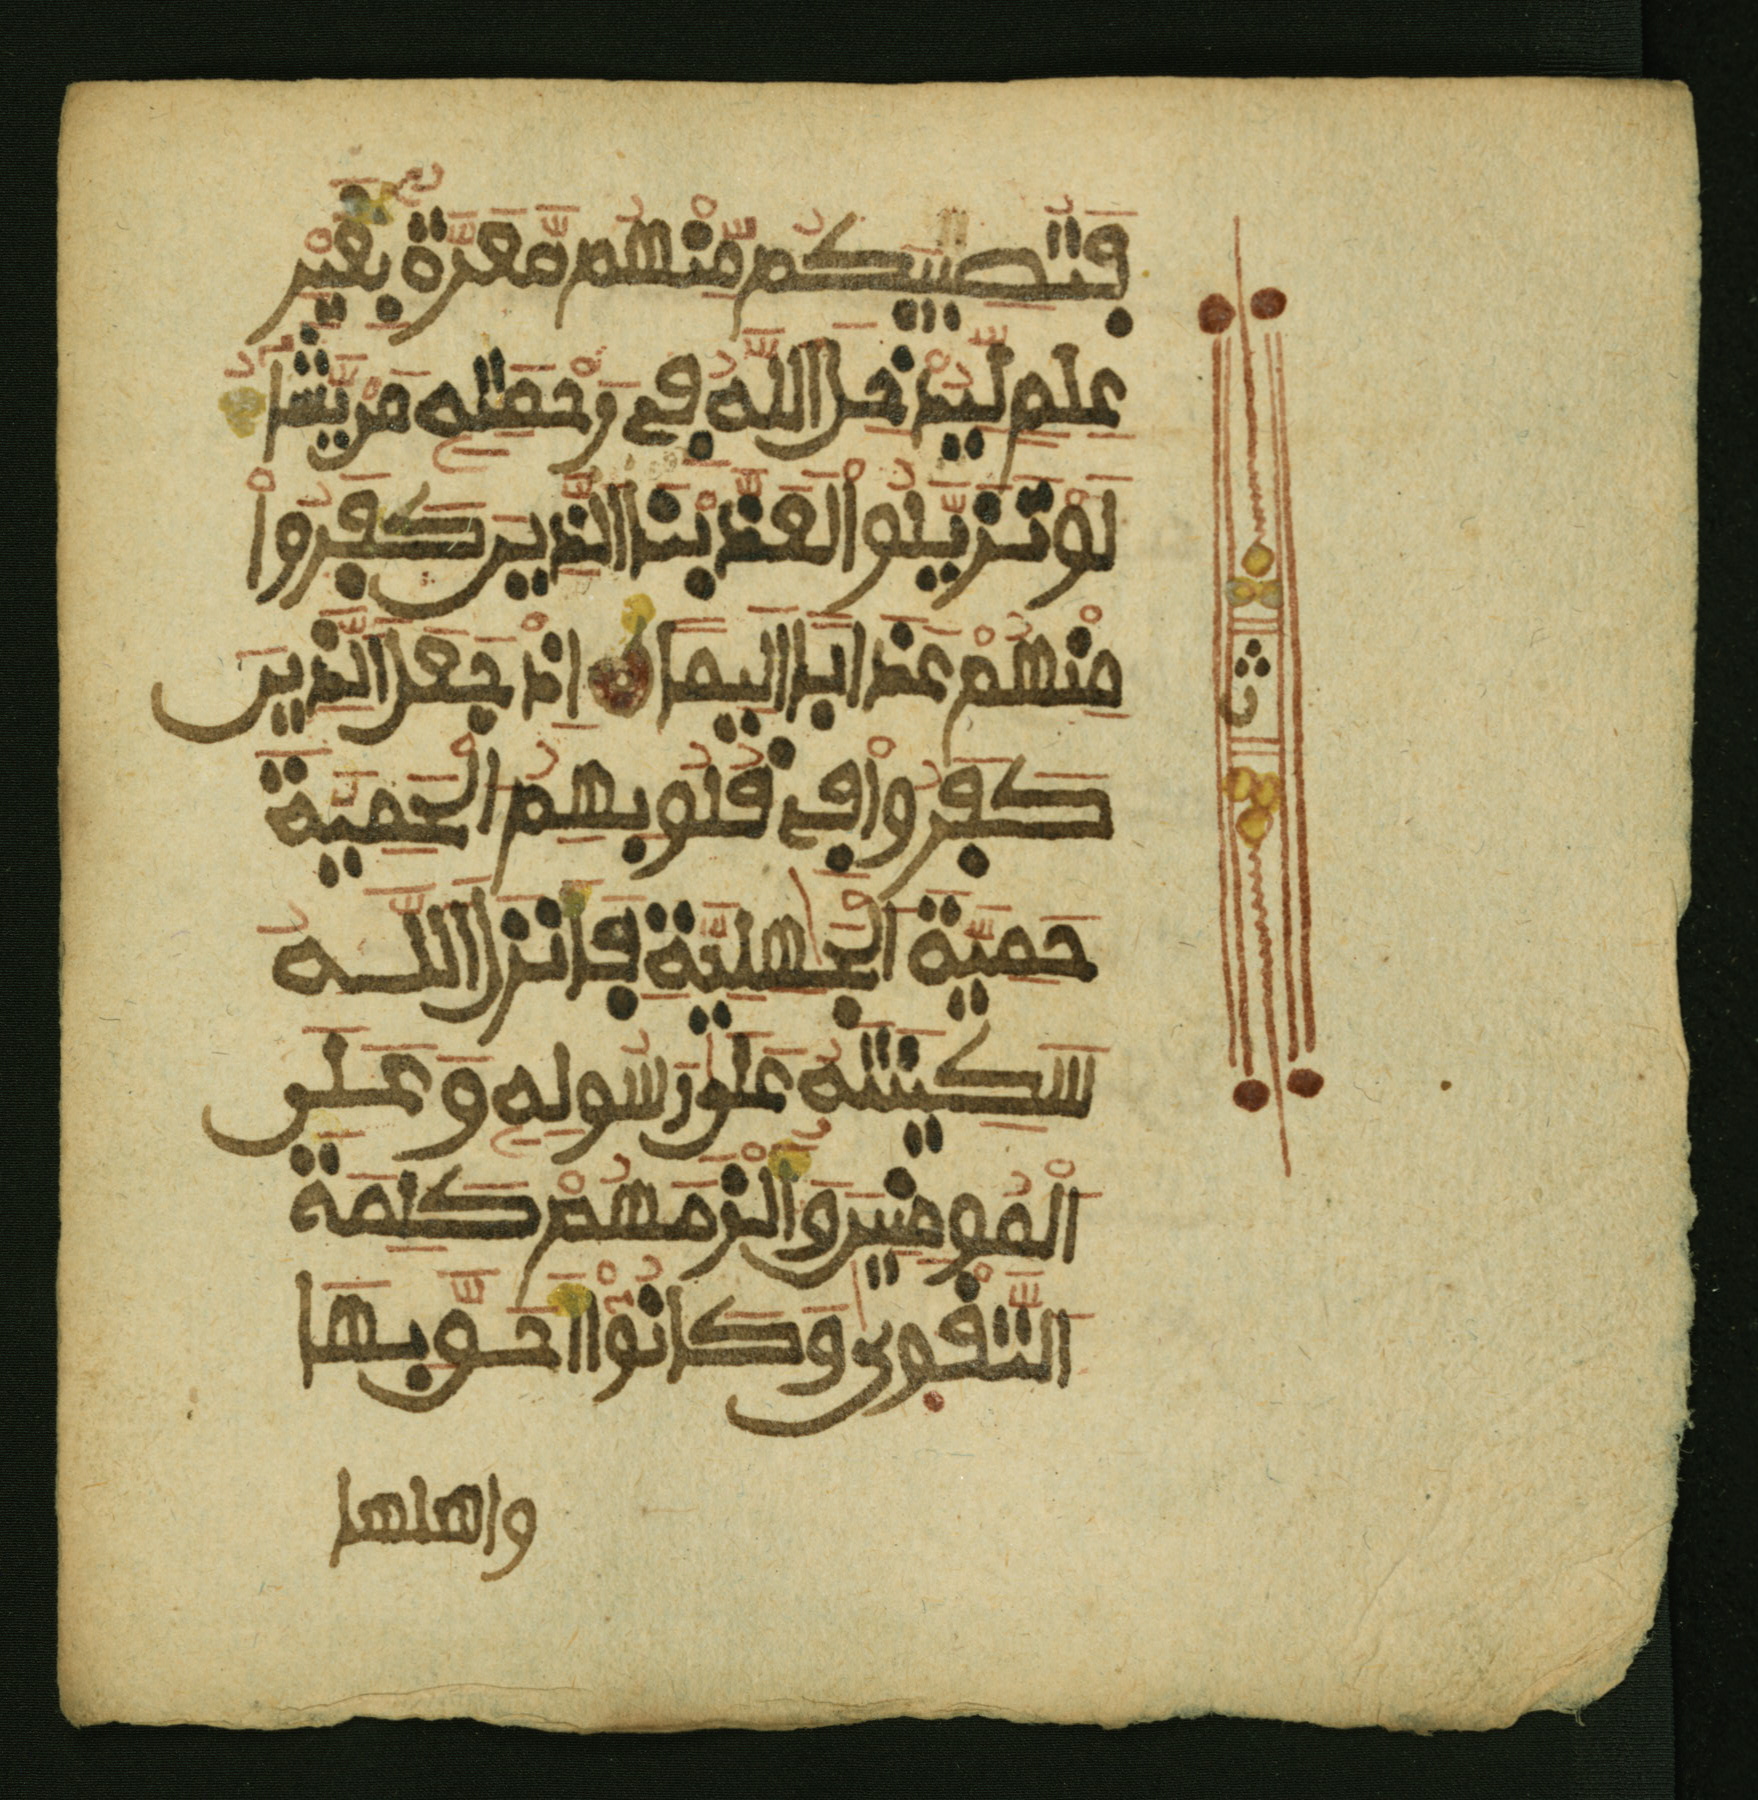 فتصيبكم منهم معرة بغير
علم ليدخل الله في رحمته من يشا
لو تزيلوا لعذبنا الذين كفروا
منهم عذابا اليما اذ جعل الذين
كفروا في قلوبهم الحمية
حمية الجهلية فانزل الله
سكينته على رسوله وعلى
المومنين والزمهم كلمة
التقوى وكانوا احق بها
واهلها